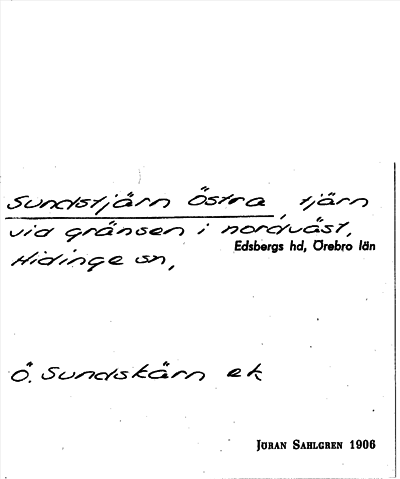 Sundstjärn Östra, tjärn
vid gränsen i nordväst,
Hidinge sn, Edsbergs hd, Örebro län
Ö. Sundskärn ek
JÖRAN SAHLGREN 1906